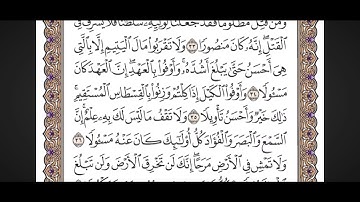 ومن قتل مظلوما فقد جعلنا لوليه سلطنا فلا يسرف في
ٱلۡقَتۡلِۖ إِنَّهُۥ كَانَ مَنصُورٗا ٣٣ وَلَا تَقۡرَبُواْ مَالَ ٱلۡيَتِيمِ إِلَّا بِٱلَّتِي
هِيَ أَحۡسَنُ حَتَّىٰ يَبۡلُغَ أَشُدَّهُۥۚ وَأَوۡفُواْ بِٱلۡعَهۡدِۖ إِنَّ ٱلۡعَهۡدَ كَانَ
مَسۡـُٔولٗا ٣٤ وَأَوۡفُواْ ٱلۡكَيۡلَ إِذَا كِلۡتُمۡ وَزِنُواْ بِٱلۡقِسۡطَاسِ ٱلۡمُسۡتَقِيمِۚ
ذَٰلِكَ خَيۡرٞ وَأَحۡسَنُ تَأۡوِيلٗا ٣٥ وَلَا تَقۡفُ مَا لَيۡسَ لَكَ بِهِۦ عِلۡمٌۚ إِنَّ
ٱلسَّمۡعَ وَٱلۡبَصَرَ وَٱلۡفُؤَادَ كُلُّ أُوْلَٰٓئِكَ كَانَ عَنۡهُ مَسۡـُٔولٗا ٣٦
وَلَا تَمۡشِ فِي ٱلۡأَرۡضِ مَرَحًاۖ إِنَّكَ لَن تَخۡرِقَ ٱلۡأَرۡضَ وَلَن تَبۡلُغَ